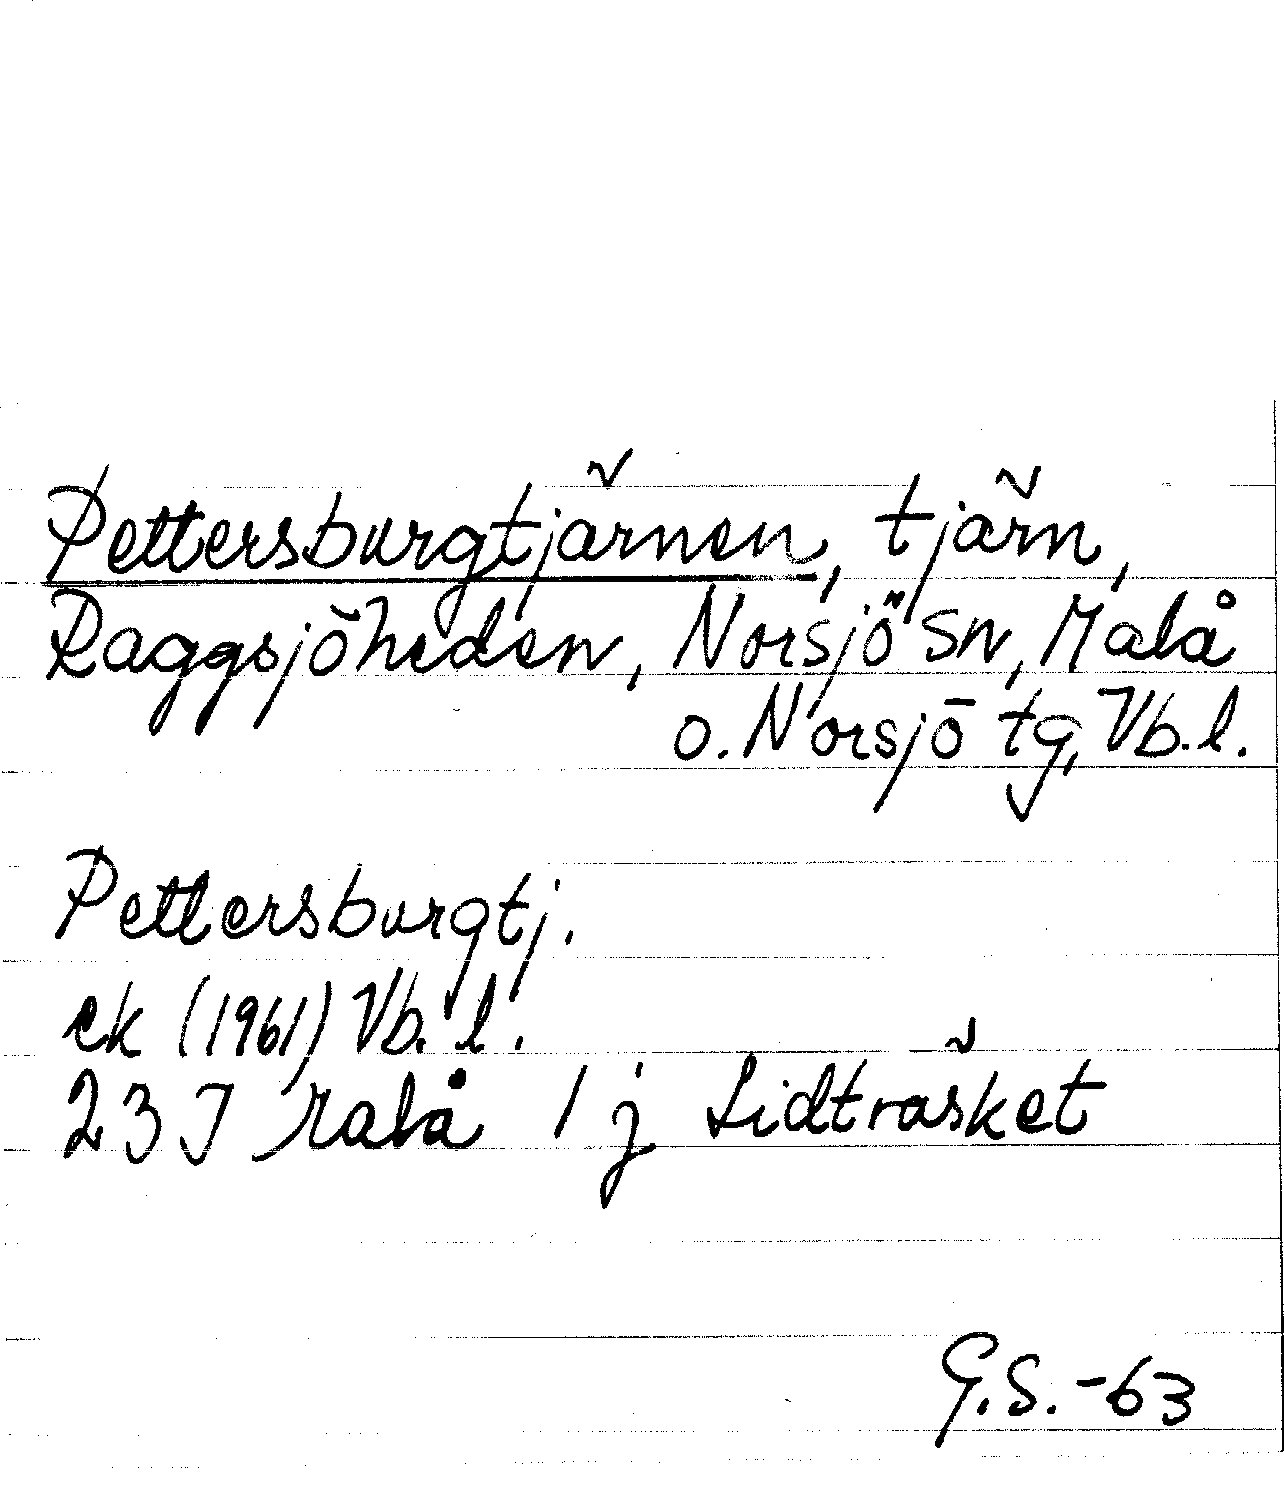 Pettersburgtjärnen, tjärn,
Raggsjöheden, Norsjö sn, Malå
o. Norsjö tg, Vb. l.
Pettersburgtj.
ek (1961) Vb. l.
23 J Malå 1 j Lidträsket
G.S. -63